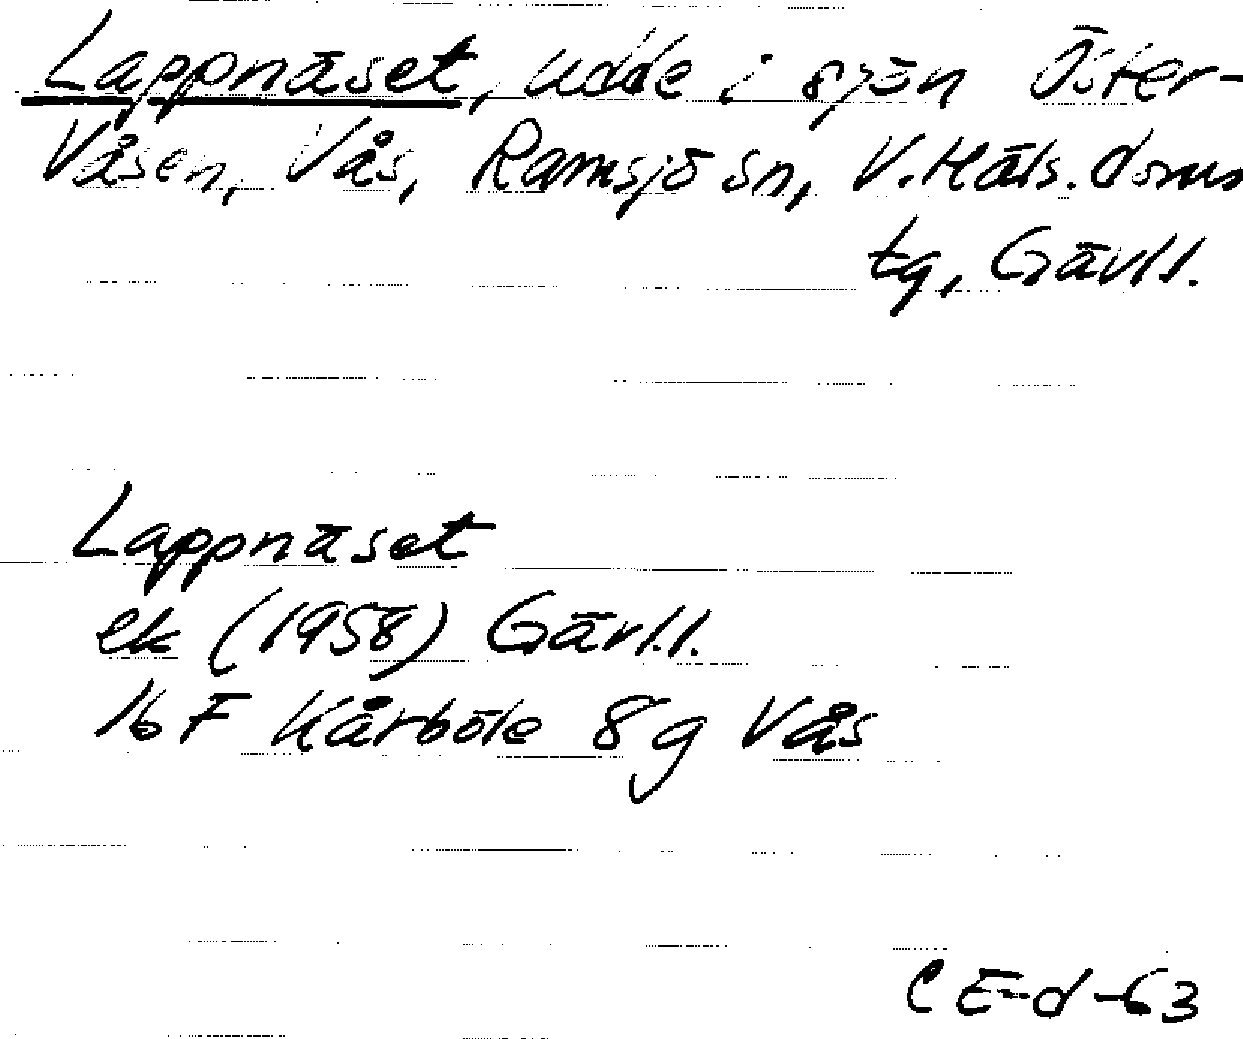 Lappnäset, udde i sjön Öster-
Våsen, Vås, Ramsjö sn, V. Häls. doms
tg, Gävl.l.
Lappnäset
ek (1958) Gävl.l.
16 F Kårböle 8 g Vås
C E-d -63